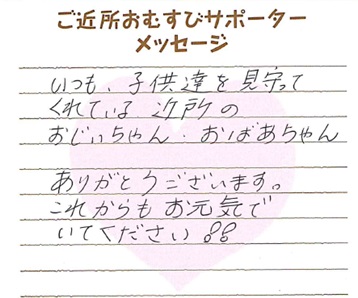 ご近所おむすびサポーター
メッセージ
いつも、子供達を見守って
くれている近所の
おじいちゃん・おばあちゃん
ありがとうございます。
これからもお元気で
いてください!!